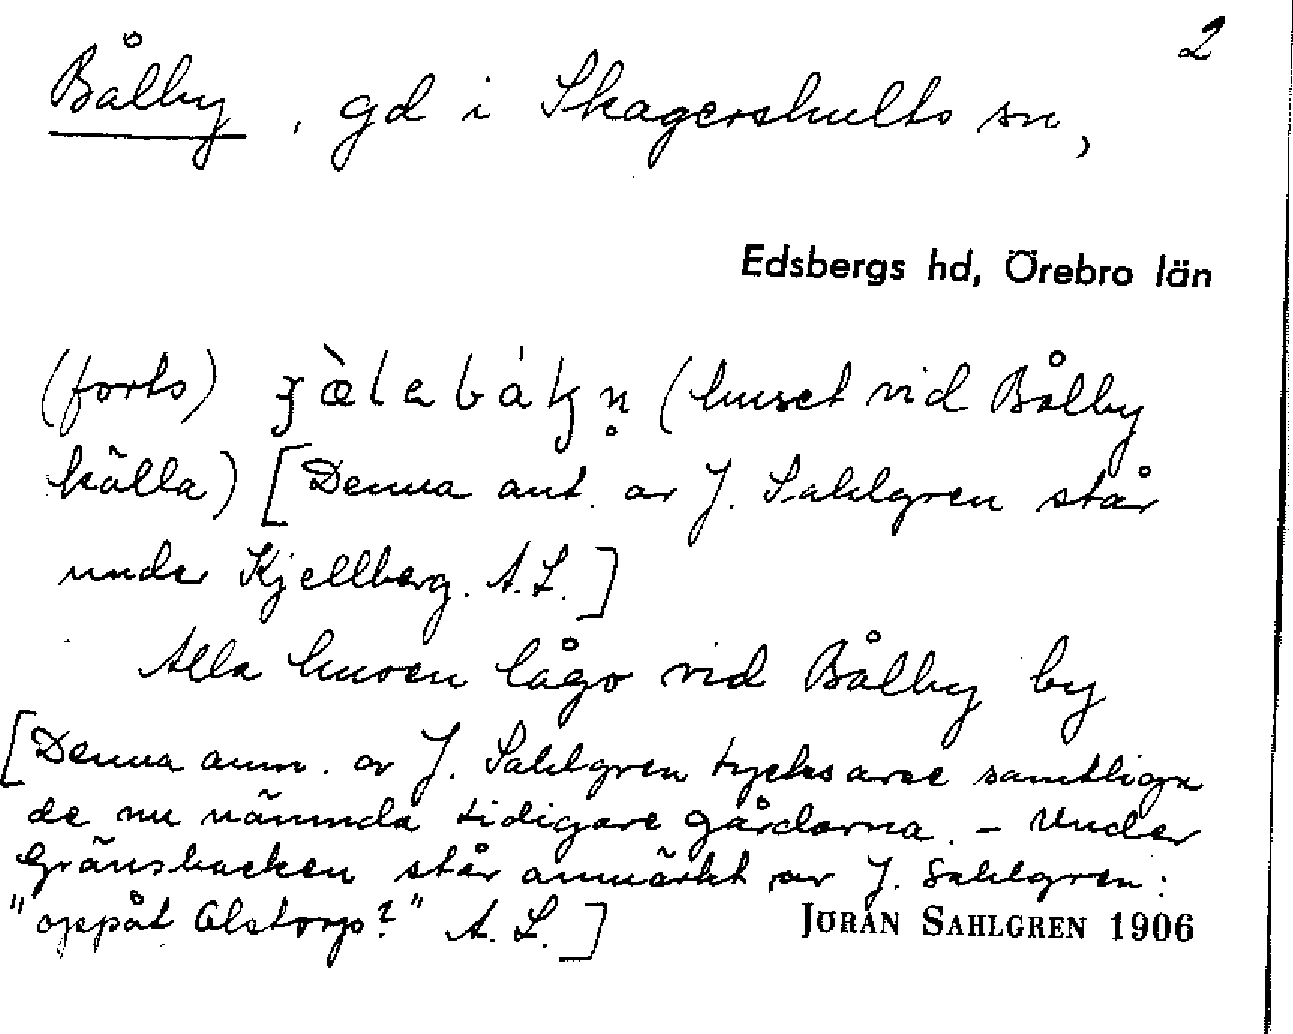 2
Bålby, gd i Skagershults sn,
Edsbergs hd, Örebro län
(forts) (huset vid Bålby
källa) [Denna ant. av J. Sahlgren står
under Kjellberg. A.L.]
Alla husen lågo vid Bålby by
[Denna anm. av J. Sahlgren tycks avse samtliga
de nu nämnda tidigare gårdarna. - Under
Gränsbacken står anmärkt av J. Sahlgren:
"oppåt Olstorp?" A.L.]
JÖRAN SAHLGREN 1906